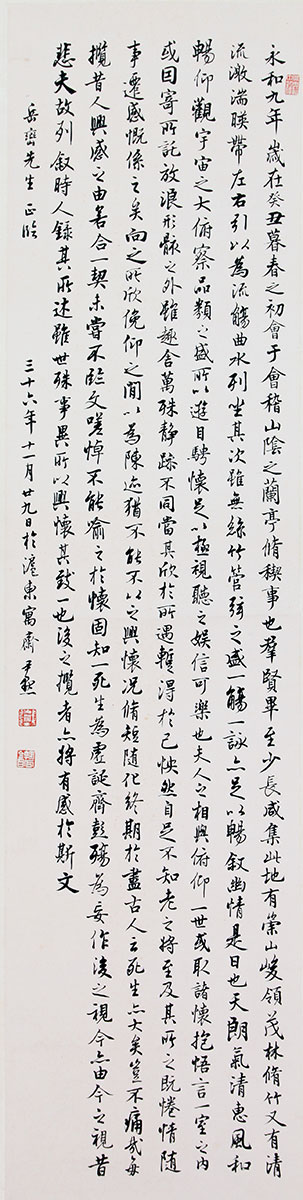 永和九年歲在癸丑暮春之初會于會稽山陰之蘭亭脩稧事也羣賢畢至少長咸集此地有崇山峻領茂林脩竹又有清
流激湍暎帶左右引以為流觴曲水列坐其次雖無絲竹管弦之盛一觴一詠亦足以暢敘幽情是日也天朗氣清惠風和
暢仰觀宇宙之大俯察品類之盛所以遊目騁懷足以極視聽之娛信可樂也夫人之相與俯仰一世或取諸懷抱悟言一室之內
或因寄所託放浪形骸之外雖趣舍萬殊靜躁不同當其欣於所遇蹔得於己怏然自足不知老之將至及其所之既惓情隨
事遷感慨係之矣向之所欣俛仰之間以為陳迹猶不能不以之興懷況脩短隨化終期於盡古人云死生亦大矣豈不痛哉每
攬昔人興感之由若合一契未嘗不臨文嗟悼不能喻之於懷固知一死生為虛誕齊彭殤為妄作後之視今亦由今之視昔
悲夫故列敘時人錄其所述雖世殊事異所以興懷其致一也後之攬者亦將有感於斯文
岳巒先生 正臨
三十六年十一月廿九日於滬東寓齋尹默